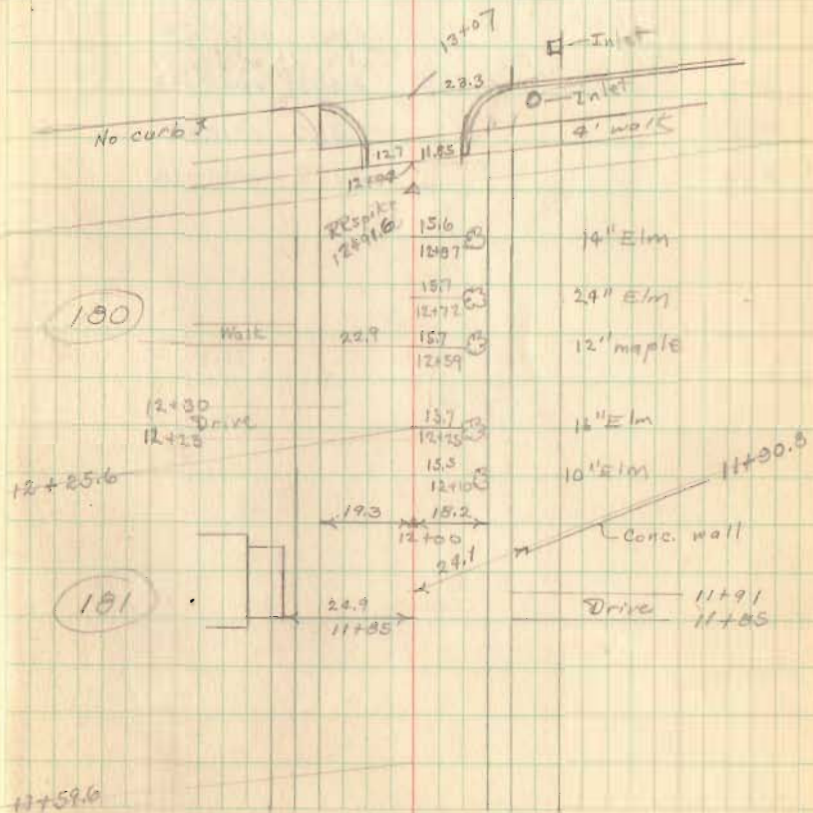 13+07
Inlet
23.3
Inlet
No curb
4' walk
12.7 11.85
12+94
RRspike
12+91.6
15.6
12+87
14" Elm
15.7
12+72
24" Elm
180
Walk
22.9
15.7
12+59
12" maple
12+30
Drive
12+23
15.7
12+25
16" Elm
12+25.6
15.5
12+10
10" Elm
11+90.8
19.3 18.2
12+00
24.1
Conc. wall
181
24.9
11+85
Drive
11+91
11+85
11+59.6